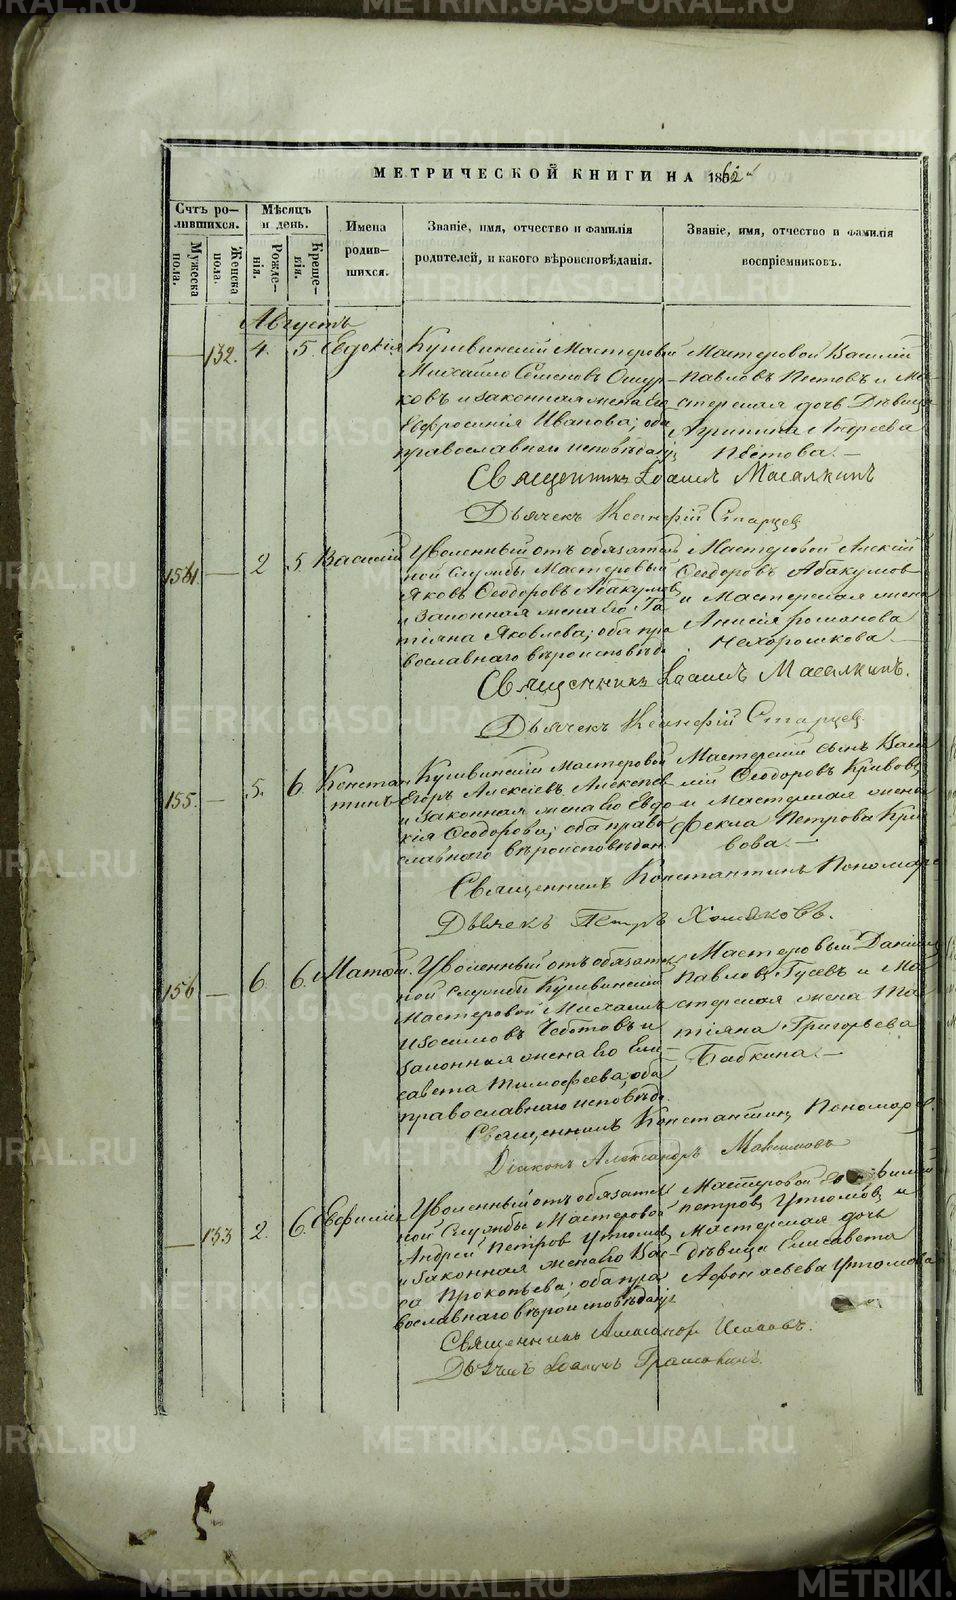 МЕТРИЧЕСКОЙ КНИГИ НА 1862й
Счтъ ро-
лившихся.
Мужеска
пола.
Женска
пола.
Мѣсяцъ
и день.
Рожде-
нія.
Креще-
нія.
Имена
родив-
шихся.
Званіе, имя, отчество и фамилія
родителей, и какого вѣроисповѣданія.
Званіе, имя, отчество и фамилія
воспріемниковъ.
Августъ
132. 4. 5. Евдокія
Кушвинскій Мастеровый
Михаило Семеновъ Ошур-
ковъ и законная жена его
Евфросинія Иванова; оба
православнаго исповѣданія
Мастеровой Василій
Павловъ Пестовъ и Ма-
стерская дочь Дѣвица
Агрипина Андреева
Пестова.—
Священникъ Іоаннъ Масалкинъ
Дьячекъ Ксанфій Старцев
154. — 2 5 Василій
Уволенный отъ обязатель-
ной службы Мастеровый
Яковъ Ѳеодоровъ Абакумов
и Законная жена его Та-
тіяна Яковлева; оба пра-
вославнаго вѣроисповѣд.
Мастеровой Алексій
Ѳеодоровъ Абакумов
и Мастерская жена
Анисія Романова
Нехорошкова.—
Священникъ Іоаннъ Масалкинъ.
Дьячекъ Ксанфій Старцев.
155. — 5. 6 Констан
тинъ
Кушвинскій Мастеровой
Егоръ Алексіевъ Алексеев
и законная жена его Евдо-
кія Ѳеодорова; оба право-
славнаго вѣроисповѣдан.
Мастерскій сынъ Васи-
лій Ѳеодоровъ Кривовъ
и Мастерская жена
Ѳекла Петрова Кри-
вова.—
Священникъ Константинъ Пономарев
Дьячекъ Петръ Хомяковъ.
156 — 6 6. Матѳій.
Уволенный отъ обязатель-
ной службы Кушвинскій
Мастеровой Михаилъ
Изосимовъ Чеботовъ и
Законная жена его Ели-
савета Тимофеева; оба
православнаго исповѣд.
Мастеровый Даніилъ
Павловъ Гусевъ и Ма-
стерская жена Та-
тіяна Григорьева
Бабкина.—
Священникъ Константинъ Пономарев.
Діаконъ Александръ Максимовъ
— 133 2. 6. Евфимія
Уволенный отъ обязатель-
ной Службы Мастеровой
Андрей Петров Утюмов
и законная жена его Вас-
са Прокопьева; оба пра-
вославнаго вѣроисповѣданія
Мастеровой
Петров Утюмов и
Мастерская дочь
дѣвица Елисавета
Афонасьева Утюмова
Священникъ Александръ
Дьячекъ Іоаннъ
METRIKI.GASO-URAL.RU